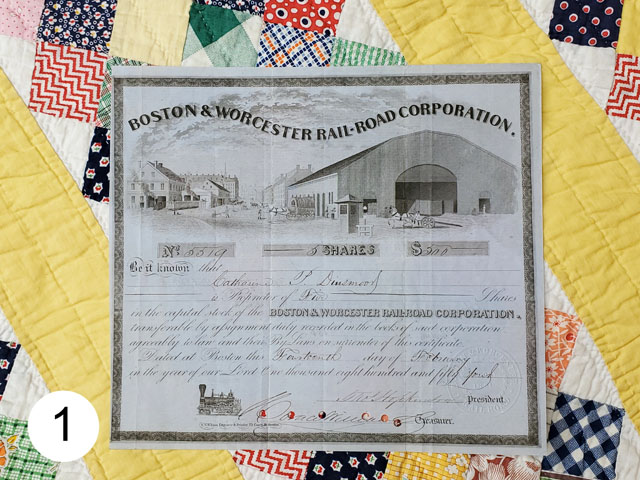 BOSTON & WORCESTER RAIL-ROAD CORPORATION.
No. 5519 5 SHARES $500
Be it known that
Catharine P. Dinsmoor
is Proprietor of Five Shares
in the capital stock of the BOSTON & WORCESTER RAIL-ROAD CORPORATION.
transferable by assignment recorded in the book of said corporation
agreeably to law and their By Laws on surrender of this certificate.
Dated at Boston this Fourteenth day of February
in the year of our Lord One thousand eight hundred and fifty four
President.
Treasurer.
1